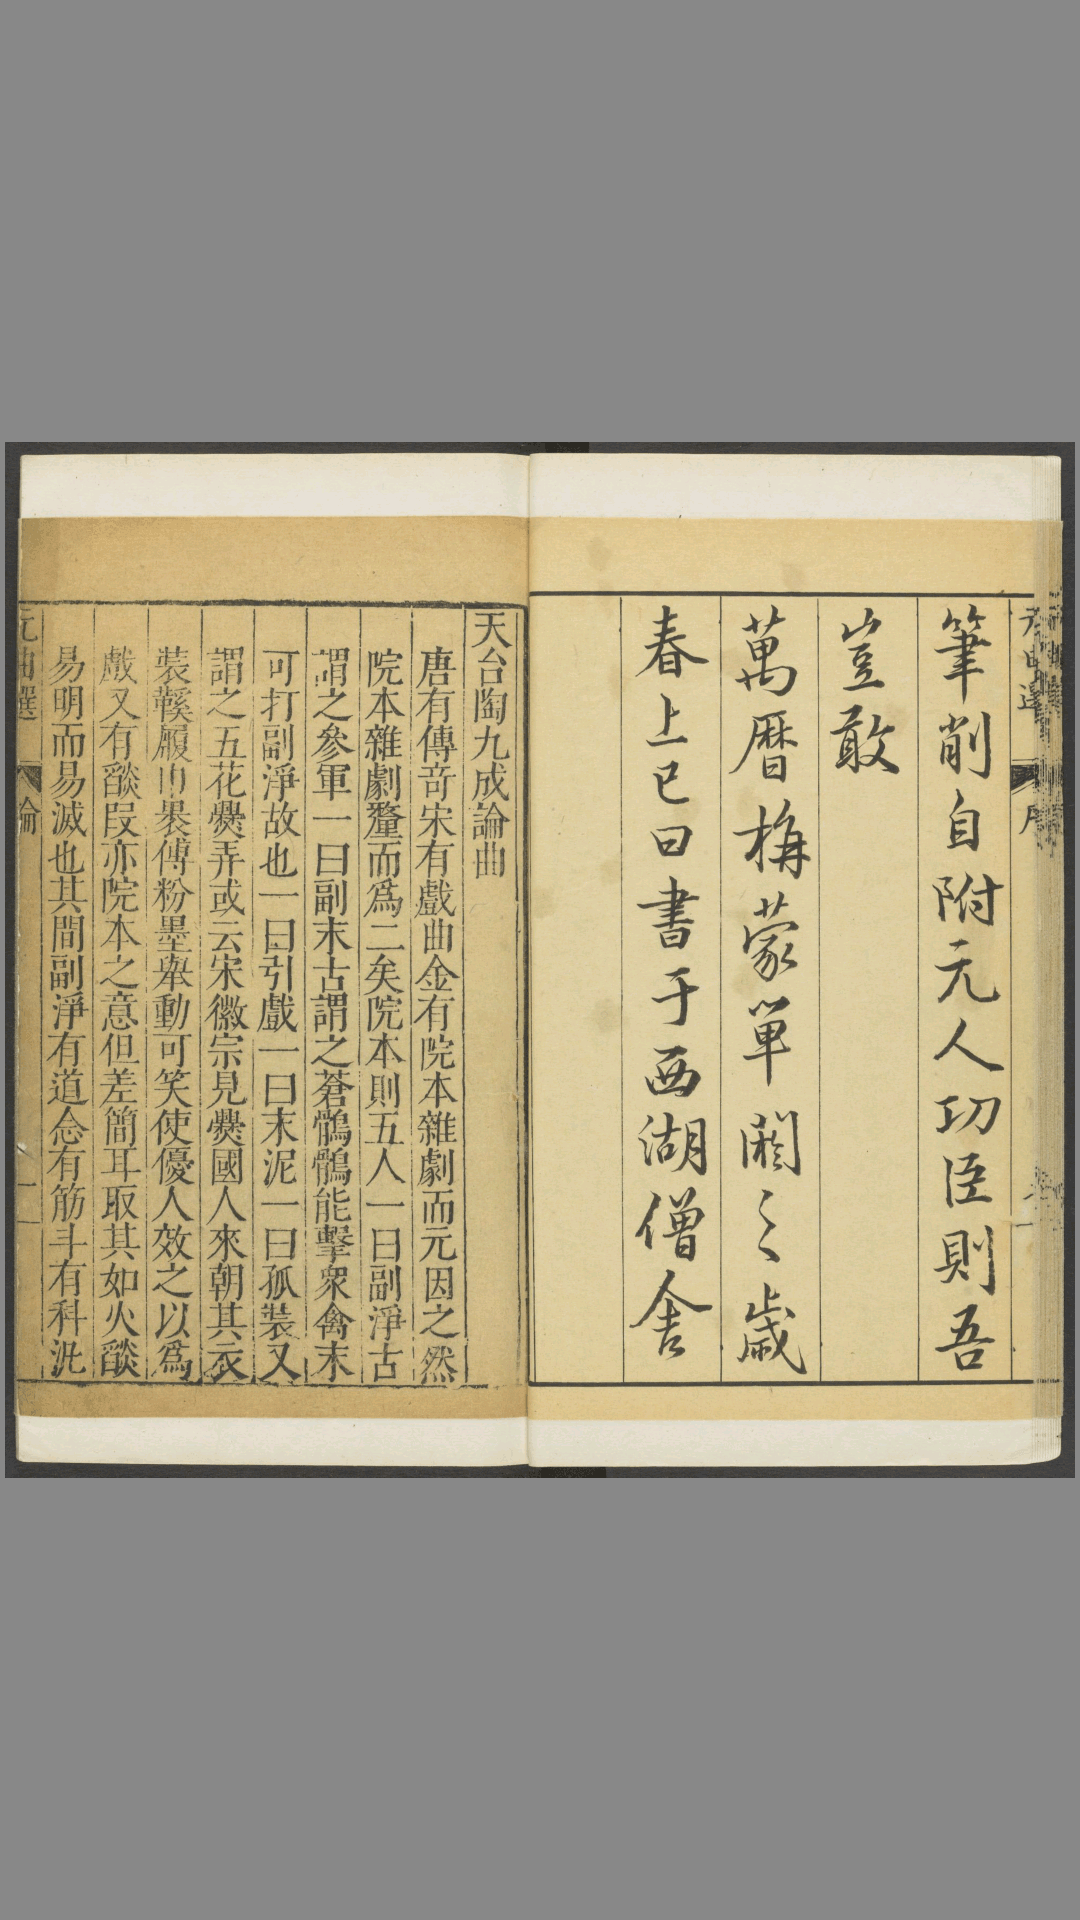 筆削自附元人功臣則吾
豈敢
萬曆柟蒙單閼之歲
春上巳日書于西湖僧舍
天台陶九成論曲
唐有傳奇宋有戲曲金有院本雜劇而元因之然
院本雜劇釐而爲二矣院本則五人一曰副淨古
謂之參軍一曰副末古謂之蒼鶻鶻能擊衆禽末
可打副淨故也一曰引戲一曰末泥一曰孤裝又
謂之五花爨弄或云宋徽宗見爨國人來朝其衣
裝鞵履巾裹傅粉墨舉動可笑使優人效之以爲
戲又有燄段亦院本之意但差簡耳取其如火燄
易明而易滅也其間副淨有道念有筋斗有科汎
元曲選
論
一